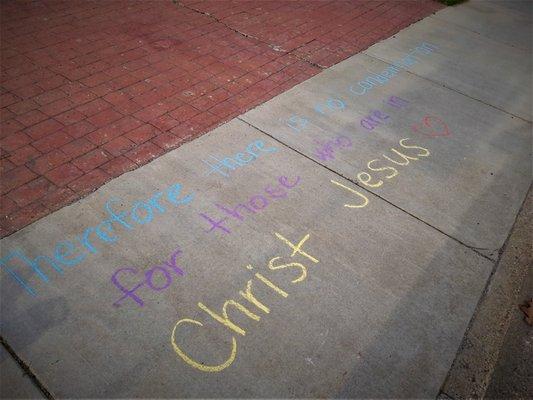 Therefore there is no condemnation
for those who are in
Christ Jesus